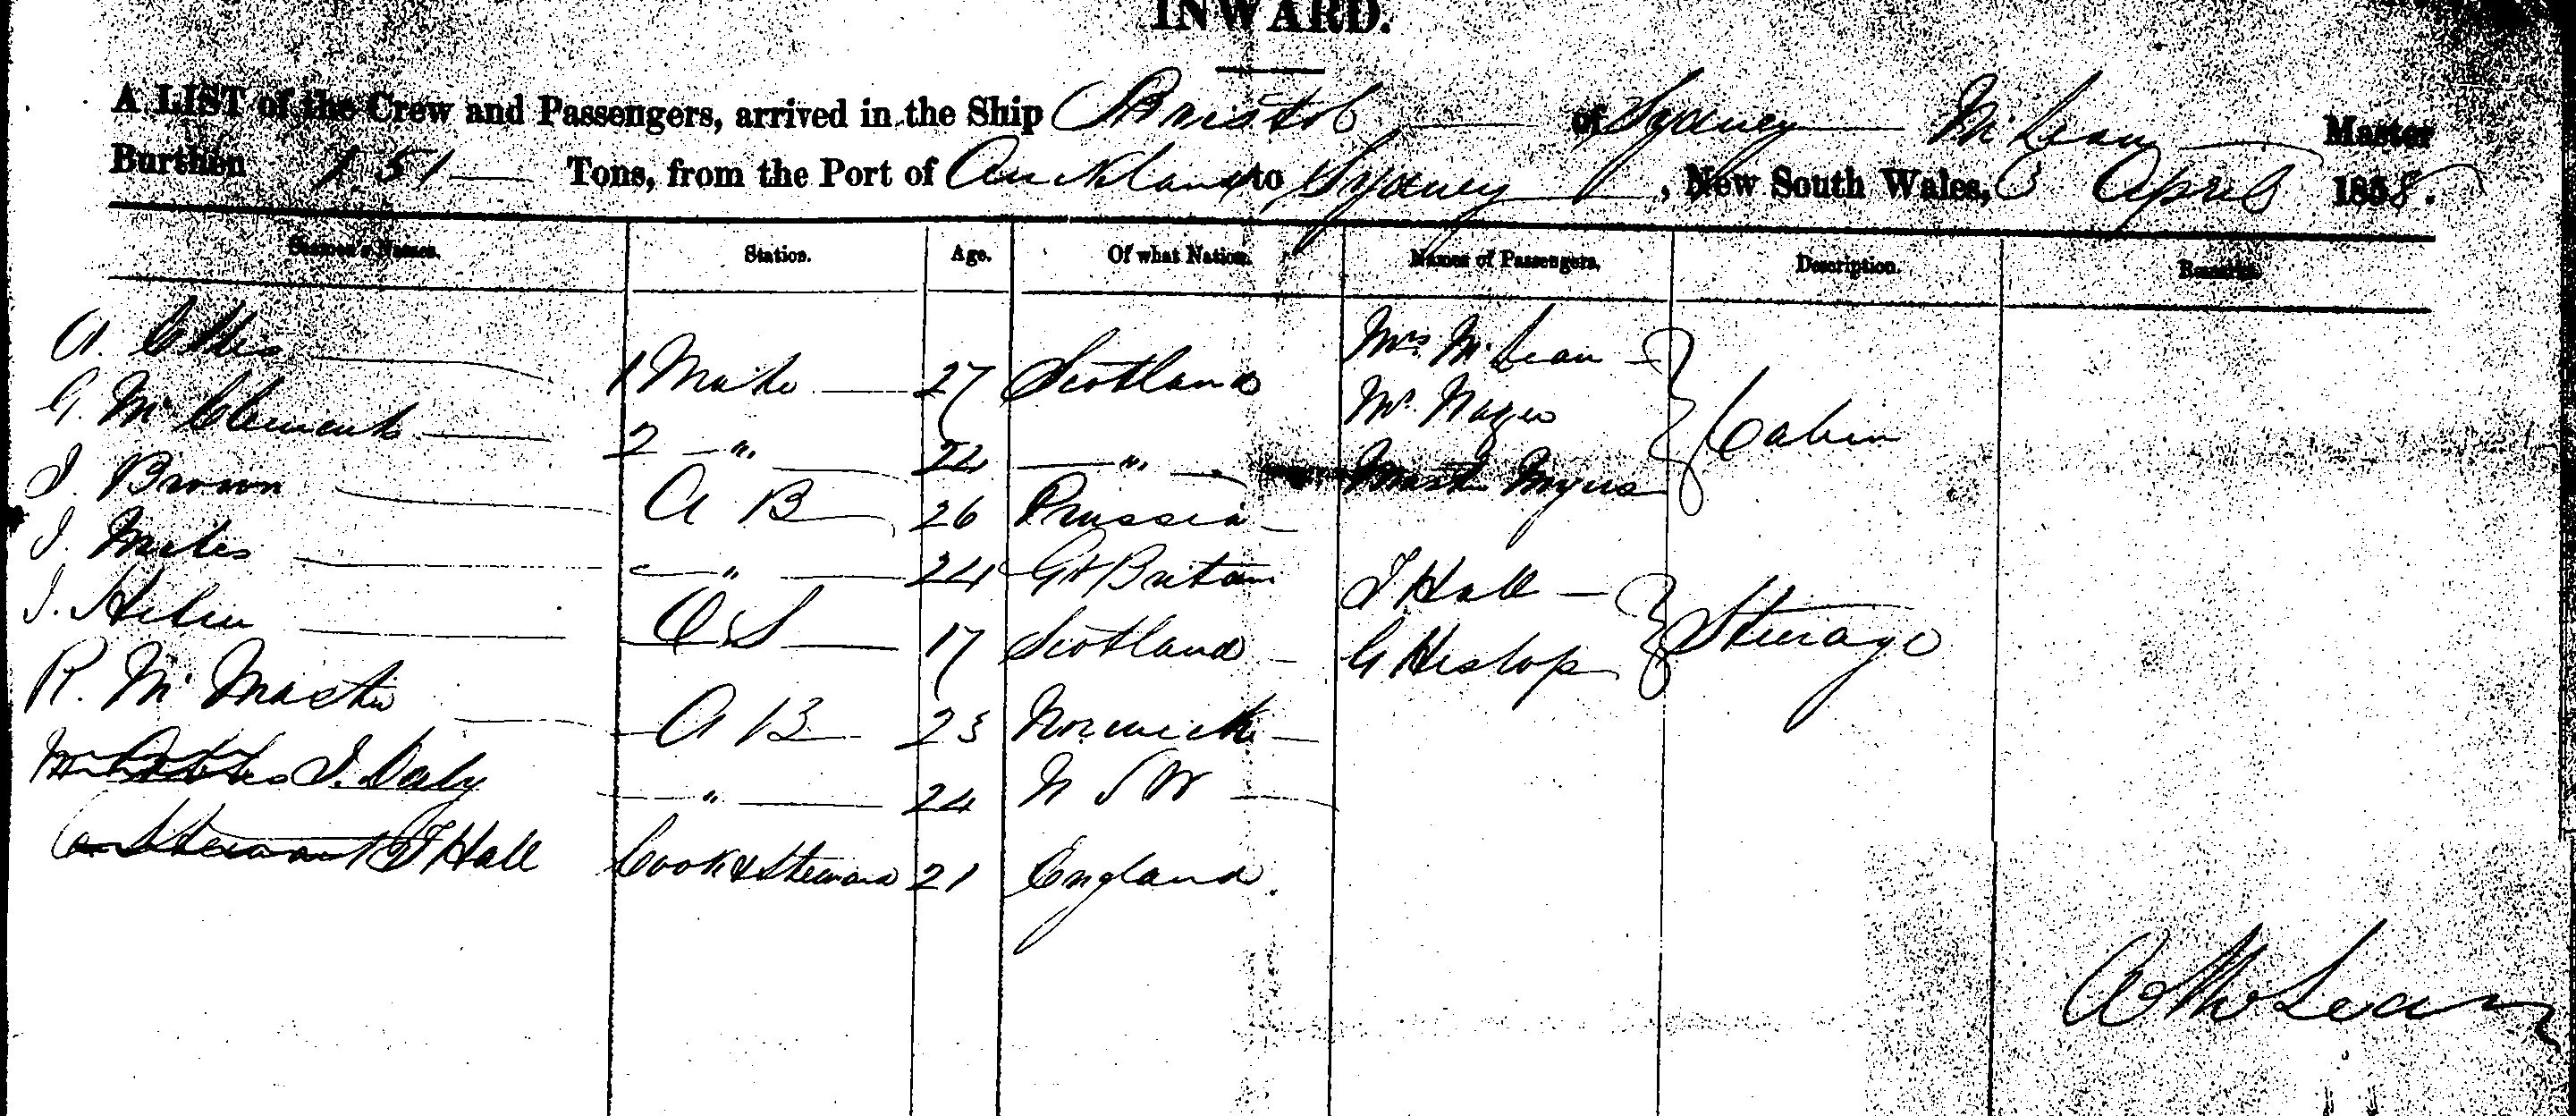 INWARD.
A LIST of the Crew and Passengers, arrived in the Ship Bristol of Sydney McLean Master
Burthen 151 Tons, from the Port of Auckland to Sydney, New South Wales, 3 April 1858.
Seamen's Names. Station. Age. Of what Nation. Names of Passengers. Description. Remarks.
A. Ellis 1 Mate 27 Scotland Mrs. McLean
G. McClements 2 " 24 " Mr.
Cabin
J. Brown A B 26 Prussia Myers
J. Miles " 24 Gt Britain J Hall
J. O S 17 Scotland G Heslop Steerage
R. McMaster A B 23
J. Daly " 24 N S W
J Hall Cook & Steward 21 England.
A McLean